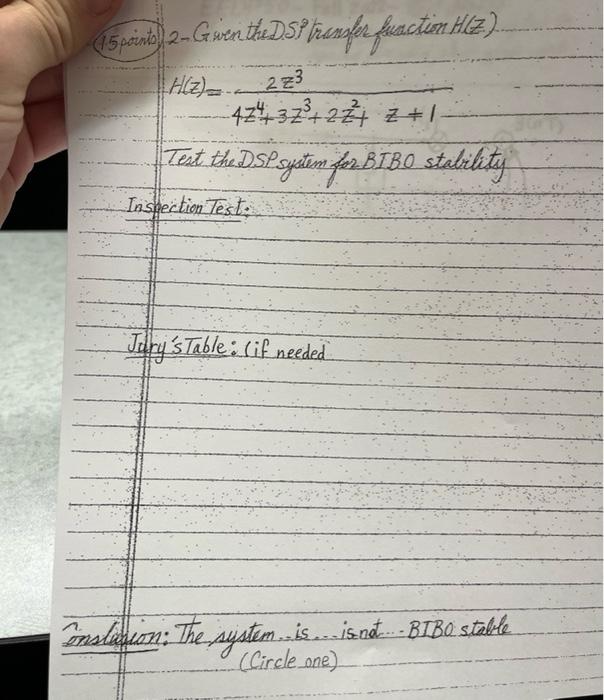 (15 points) 2- Given the DSP transfer function H(Z)
H(Z) = 2Z³
4Z⁴ + 3Z³ + 2Z² + Z + 1
Test the DSP system for BIBO stability
Inspection Test:
Jury's Table: (if needed
Conslusion: The system .. is ... is not ... BIBO stable
(Circle one)